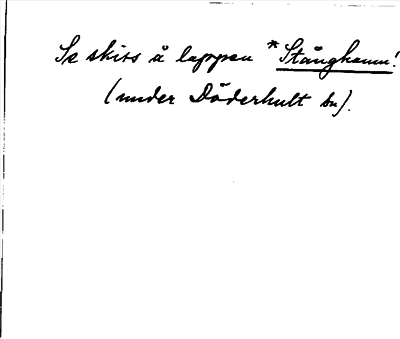 Se skiss å lappen *Stånghamn!
(under Döderhult sn).